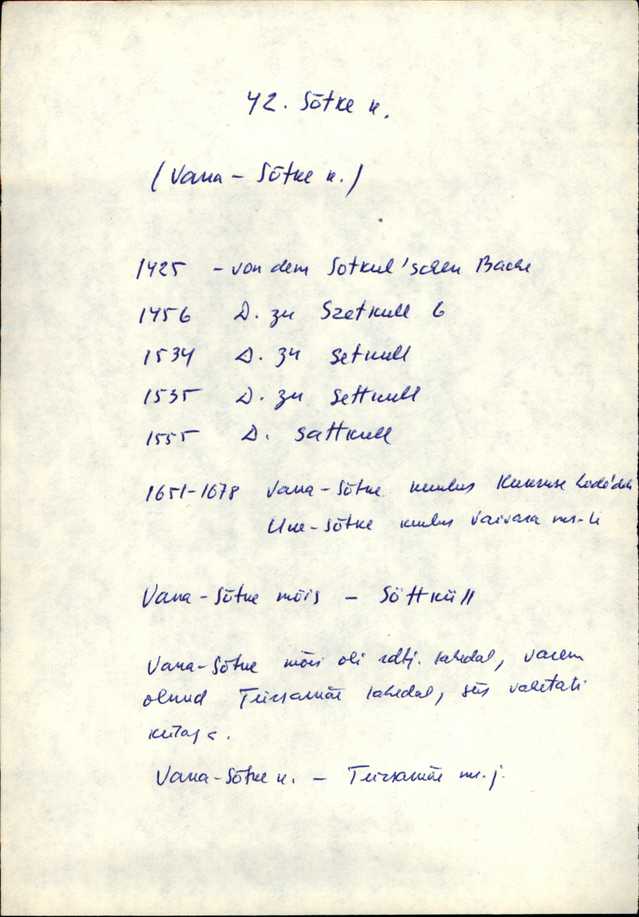 42. Sõtke k.
(Vana-Sõtke k.)
1425 - von dem Sotkul'schen Bache
1456 D. zu Szetkull 6
1534 D. zu Setkull
1535 D. zu Settkull
1555 D. Sattkull
1651-1678 Vana-Sõtke kuulus Kukruse
Uue-Sõtke kuulus Vaivara ms-le
Vana-Sõtke mõis - Söttküll
Vana-Sõtke mõis oli rdtj. lähedal, varem
olnud Türsamäe lähedal, siis vahetati
Vana-Sõtke k. - Türsamäe ms. j.